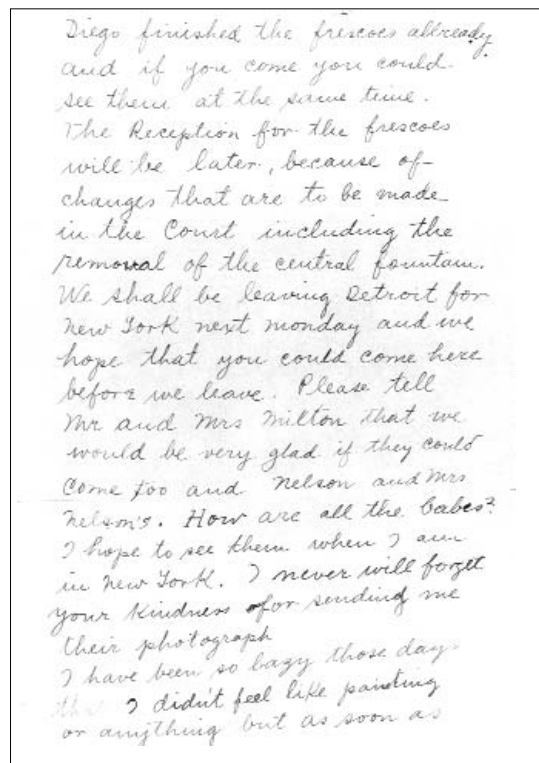 Diego finished the frescoes allready
and if you come you could
see them at the same time.
The Reception for the frescoes
will be later, because of
changes that are to be made
in the Court including the
removal of the central fountain.
We shall be leaving Detroit for
New York next monday and we
hope that you could come here
before we leave. Please tell
Mr and Mrs Milton that we
would be very glad if they could
come too and Nelson and Mrs
Nelson's. How are all the babes?
I hope to see them when I am
in New York. I never will forget
your kindness for sending me
their photograph
I have been so lazy those days
that I didn't feel like painting
or anything but as soon as